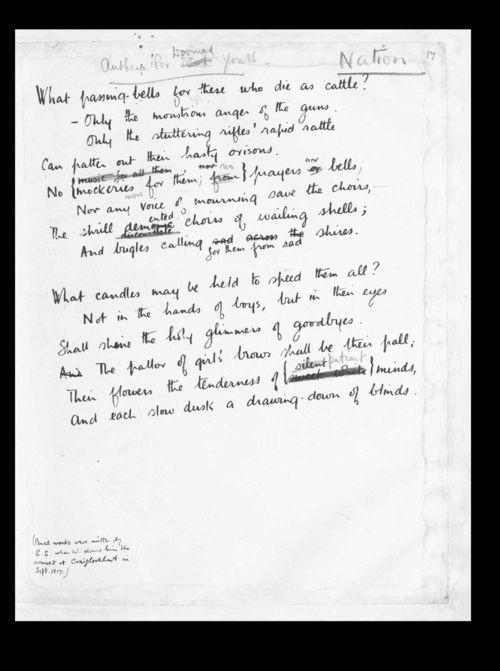 Doomed
Anthem for Dead Youth. Nation 17
What passing-bells for these who die as cattle?
- Only the monstrous anger of the guns.
Only the stuttering rifles' rapid rattle
Can patter out their hasty orisons.
music for all them nor
No mockeries for them; from prayers or bells,
now
Nor any voice of mourning save the choirs,-
ented
The shrill demonic choirs of wailing shells;
disconsolate
And bugles calling sad across the shires.
for them from sad
What candles may be held to speed them all?
Not in the hands of boys, but in their eyes
Shall shine the holy glimmers of goodbyes.
And The pallor of girls' brows shall be their pall;
silent patient
Their flowers the tenderness of sweet white minds,
And each slow dusk a drawing-down of blinds.
(Pencil words were written by
S.S. when W. showed him the
sonnet at Craiglockhart in
Sept. 1917.)